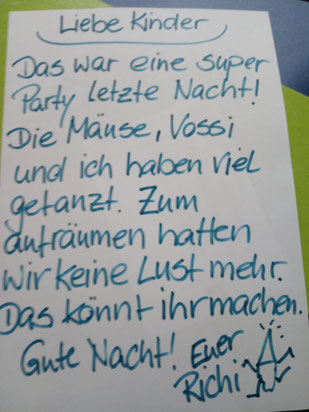 Liebe Kinder
Das war eine super
Party letzte Nacht!
Die Mäuse, Vossi
und ich haben viel
getanzt. Zum
aufräumen hatten
wir keine Lust mehr.
Das könnt ihr machen.
Gute Nacht! Euer
Richi